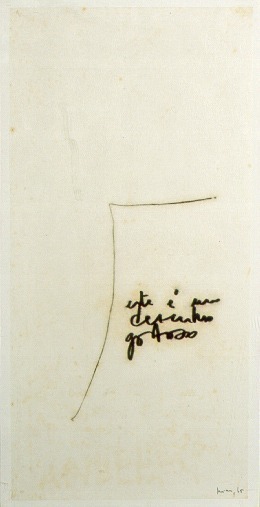 este é um
desenho
gostoso